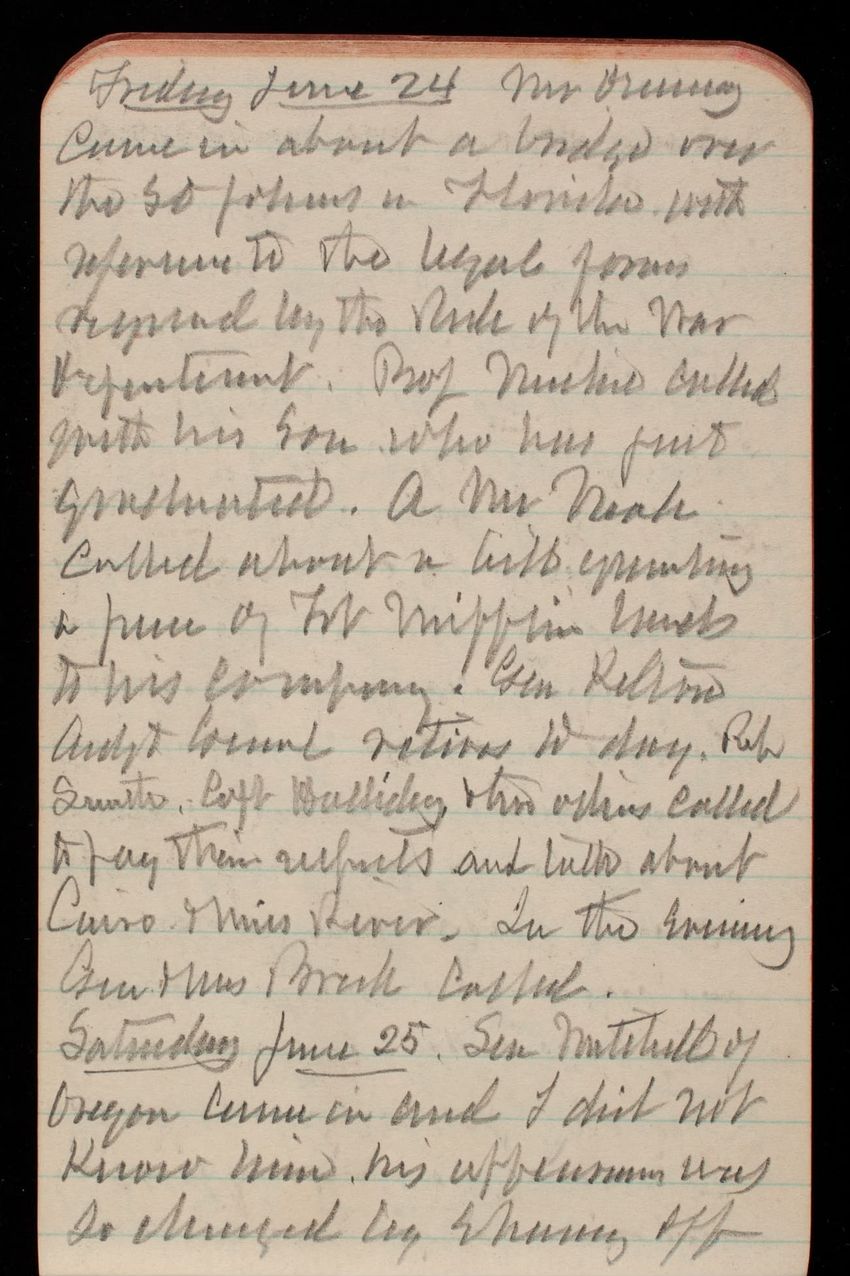 Friday June 24 Mr
Came in about a bridge over
the St Johns in Florida with
reference to the legal forms
required by the Rule of the War
Department. Prof Michie called
with his Son who has just
graduated. A Mr
called about a bill granting
a piece of Fort Mifflin lands
to his company. Gen Kelton
Adjt Genrl retires to day. Rep
Smith, Capt Halliday, & two others called
to pay their respects and talk about
Cairo & Miss River. In the evening
Gen & Mrs Breck called.
Saturday June 25. Sen Mitchell of
Oregon came in and I did not
know him. his appearance was
so changed by Shaving off